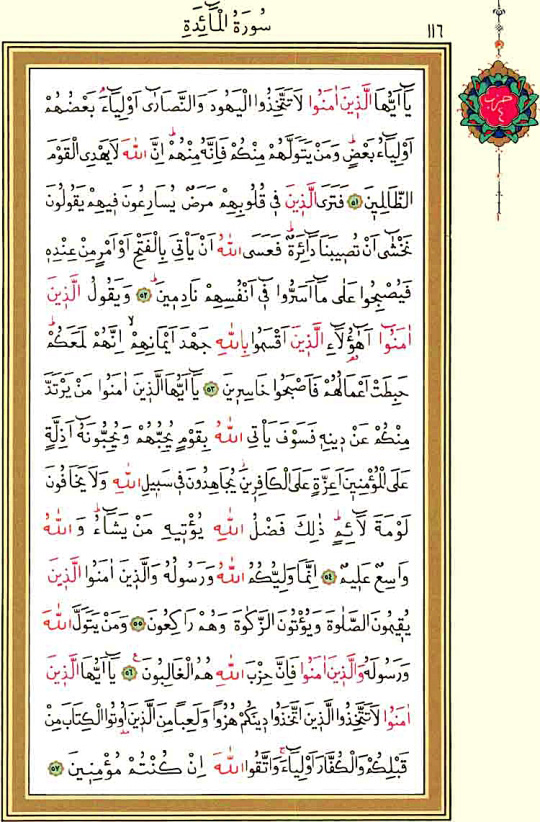 سُورَةُ الْمَائِدَةِ
١١٦
حزب
٤
يَٓا اَيُّهَا الَّذ۪ينَ اٰمَنُوا لَا تَتَّخِذُوا الْيَهُودَ وَالنَّصَارٰٓى اَوْلِيَٓاءَۢ بَعْضُهُمْ
اَوْلِيَٓاءُ بَعْضٍۜ وَمَنْ يَتَوَلَّهُمْ مِنْكُمْ فَاِنَّهُ مِنْهُمْۜ اِنَّ اللّٰهَ لَا يَهْدِي الْقَوْمَ
الظَّالِم۪ينَ ﴿٥١﴾ فَتَرَى الَّذ۪ينَ ف۪ي قُلُوبِهِمْ مَرَضٌ يُسَارِعُونَ ف۪يهِمْ يَقُولُونَ
نَخْشٰٓى اَنْ تُص۪يبَنَا دَٓائِرَةٌۜ فَعَسَى اللّٰهُ اَنْ يَأْتِيَ بِالْفَتْحِ اَوْ اَمْرٍ مِنْ عِنْدِه۪
فَيُصْبِحُوا عَلٰى مَٓا اَسَرُّوا ف۪ٓي اَنْفُسِهِمْ نَادِم۪ينَۜ ﴿٥٢﴾ وَيَقُولُ الَّذ۪ينَ
اٰمَنُٓوا اَهٰٓؤُ۬لَٓاءِ الَّذ۪ينَ اَقْسَمُوا بِاللّٰهِ جَهْدَ اَيْمَانِهِمْۙ اِنَّهُمْ لَمَعَكُمْۜ
حَبِطَتْ اَعْمَالُهُمْ فَاَصْبَحُوا خَاسِر۪ينَ ﴿٥٣﴾ يَٓا اَيُّهَا الَّذ۪ينَ اٰمَنُوا مَنْ يَرْتَدَّ
مِنْكُمْ عَنْ د۪ينِه۪ فَسَوْفَ يَأْتِي اللّٰهُ بِقَوْمٍ يُحِبُّهُمْ وَيُحِبُّونَهُٓ اَذِلَّةٍ
عَلَى الْمُؤْمِن۪ينَ اَعِزَّةٍ عَلَى الْكَافِر۪ينَۘ يُجَاهِدُونَ ف۪ي سَب۪يلِ اللّٰهِ وَلَا يَخَافُونَ
لَوْمَةَ لَٓائِمٍۜ ذٰلِكَ فَضْلُ اللّٰهِ يُؤْت۪يهِ مَنْ يَشَٓاءُۜ وَاللّٰهُ
وَاسِعٌ عَل۪يمٌ ﴿٥٤﴾ اِنَّمَا وَلِيُّكُمُ اللّٰهُ وَرَسُولُهُ وَالَّذ۪ينَ اٰمَنُوا الَّذ۪ينَ
يُق۪يمُونَ الصَّلٰوةَ وَيُؤْتُونَ الزَّكٰوةَ وَهُمْ رَاكِعُونَ ﴿٥٥﴾ وَمَنْ يَتَوَلَّ اللّٰهَ
وَرَسُولَهُ وَالَّذ۪ينَ اٰمَنُوا فَاِنَّ حِزْبَ اللّٰهِ هُمُ الْغَالِبُونَ۟ ﴿٥٦﴾ يَٓا اَيُّهَا الَّذ۪ينَ
اٰمَنُوا لَا تَتَّخِذُوا الَّذ۪ينَ اتَّخَذُوا د۪ينَكُمْ هُزُواً وَلَعِباً مِنَ الَّذ۪ينَ اُو۫تُوا الْكِتَابَ مِنْ
قَبْلِكُمْ وَالْكُفَّارَ اَوْلِيَٓاءَۚ وَاتَّقُوا اللّٰهَ اِنْ كُنْتُمْ مُؤْمِن۪ينَ ﴿٥٧﴾